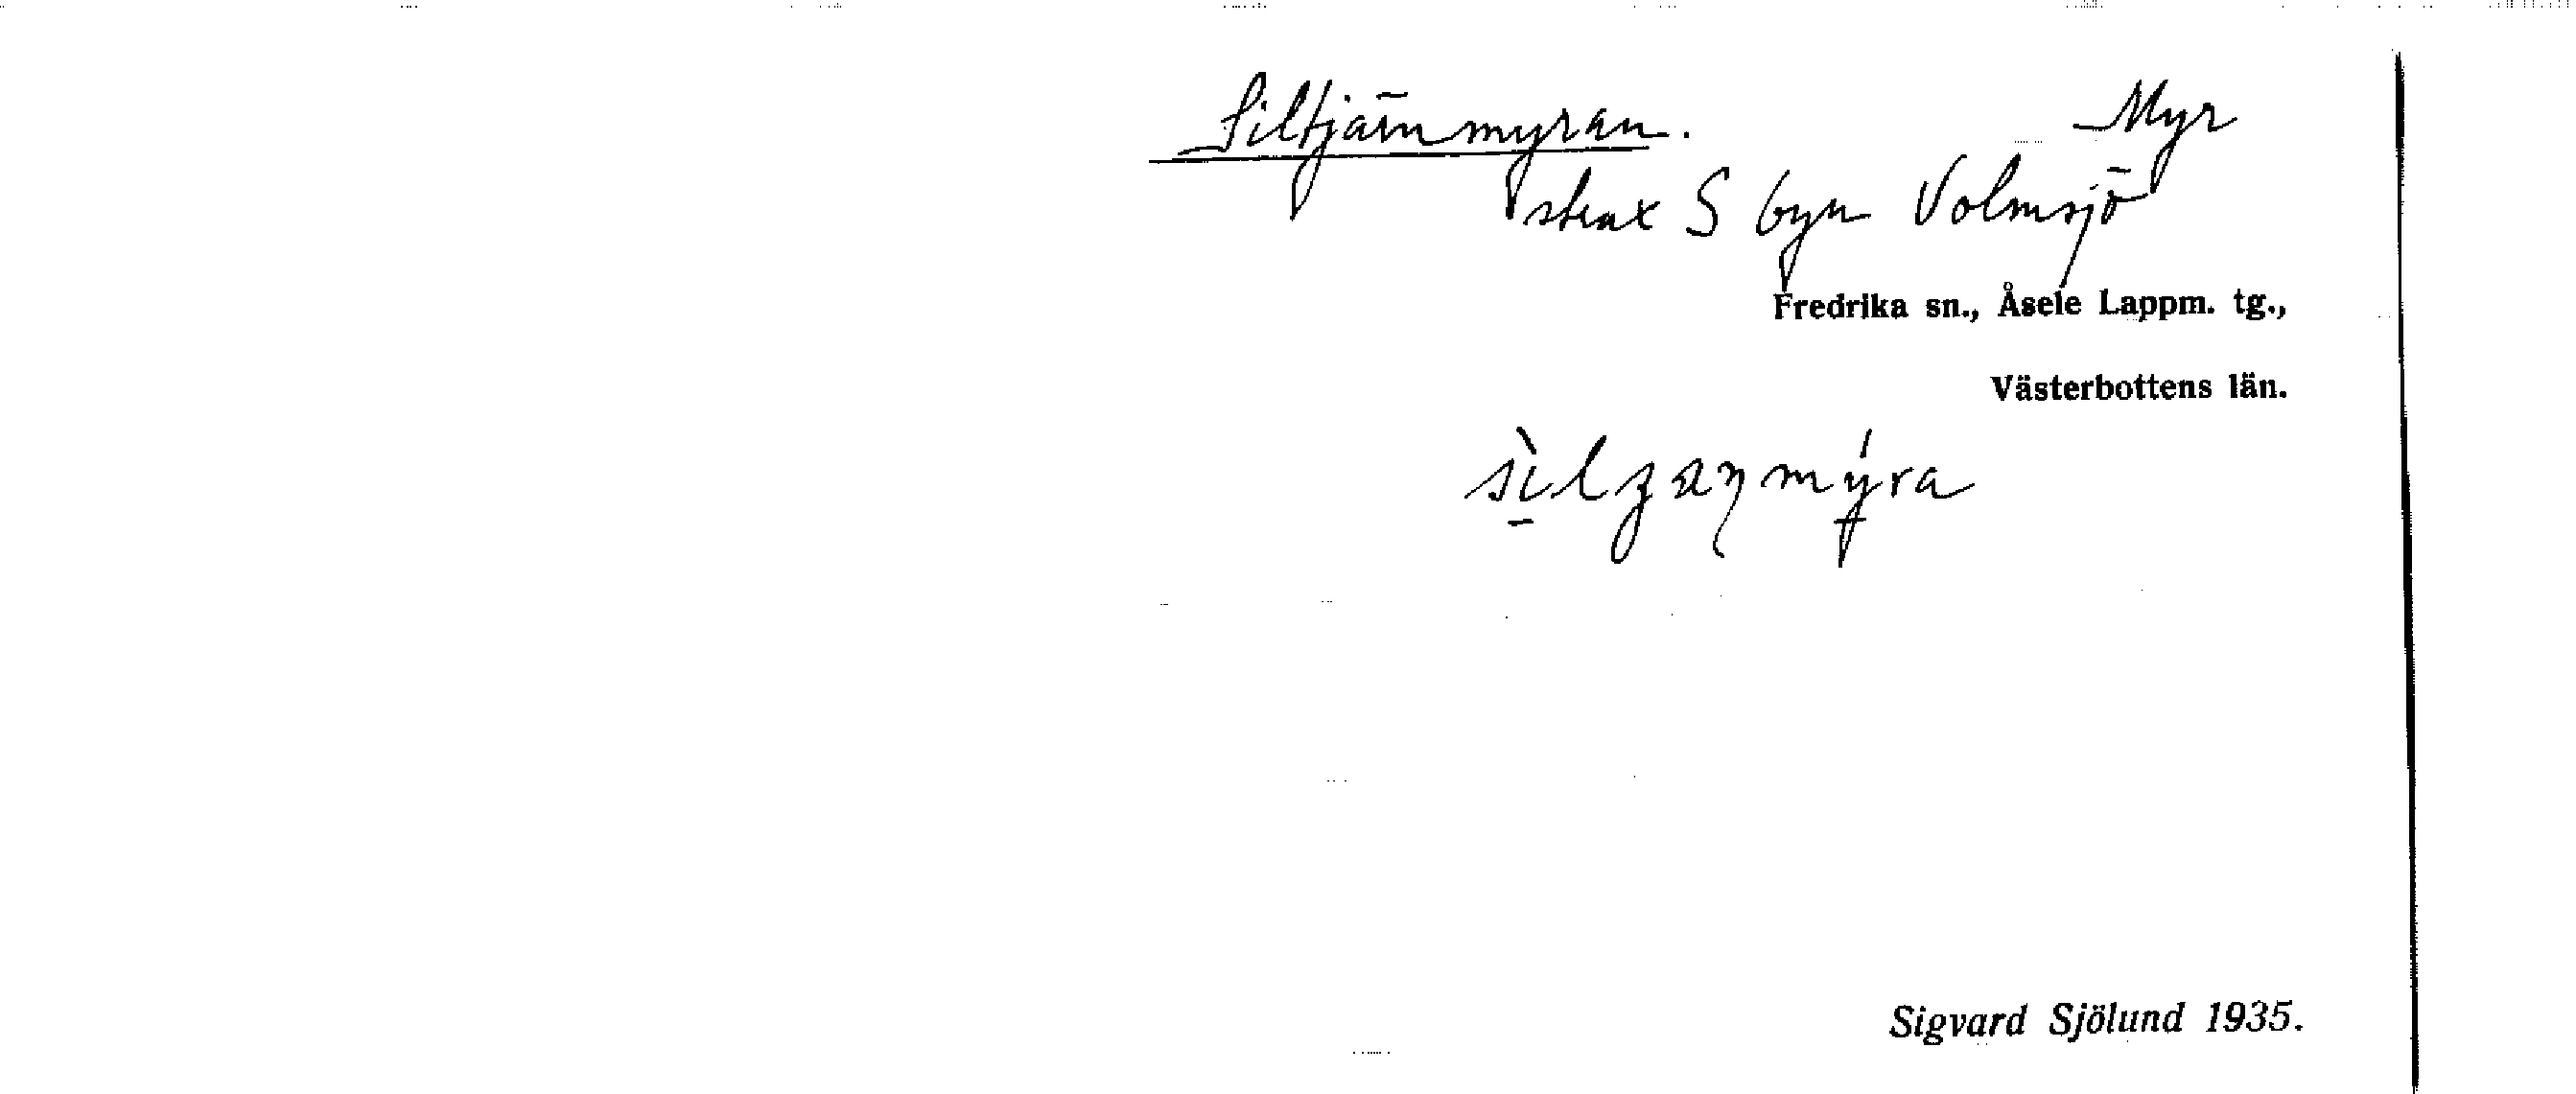 Siltjärnmyran. Myr
strax S byn Volmsjö
Fredrika sn., Åsele Lappm. tg.,
Västerbottens län.
Sigvard Sjölund 1935.